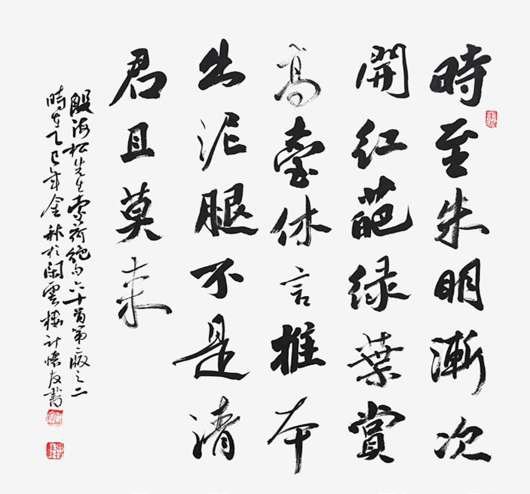 時至朱明漸次
開紅葩綠葉賞
高臺休言推本
出泥腿不是清
君且莫来
殷海松先生荷絕句六十首第二版之二
時在乙巳年金秋於閑雲樓計懷友書